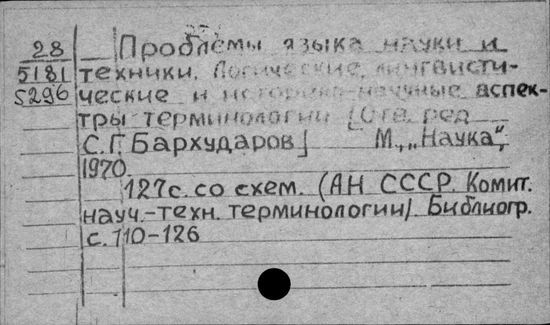 28
5181
5296
Проблемы языка науки и
техники. Логические, лингвисти-
ческие и историко-научные аспек-
ты терминологии [Отв. ред.
С.Г. Бархударов] М., „Наука",
1970.
127с. со схем. (АН СССР. Комит.
науч.-техн. терминологии). Библиогр.
с. 110-126